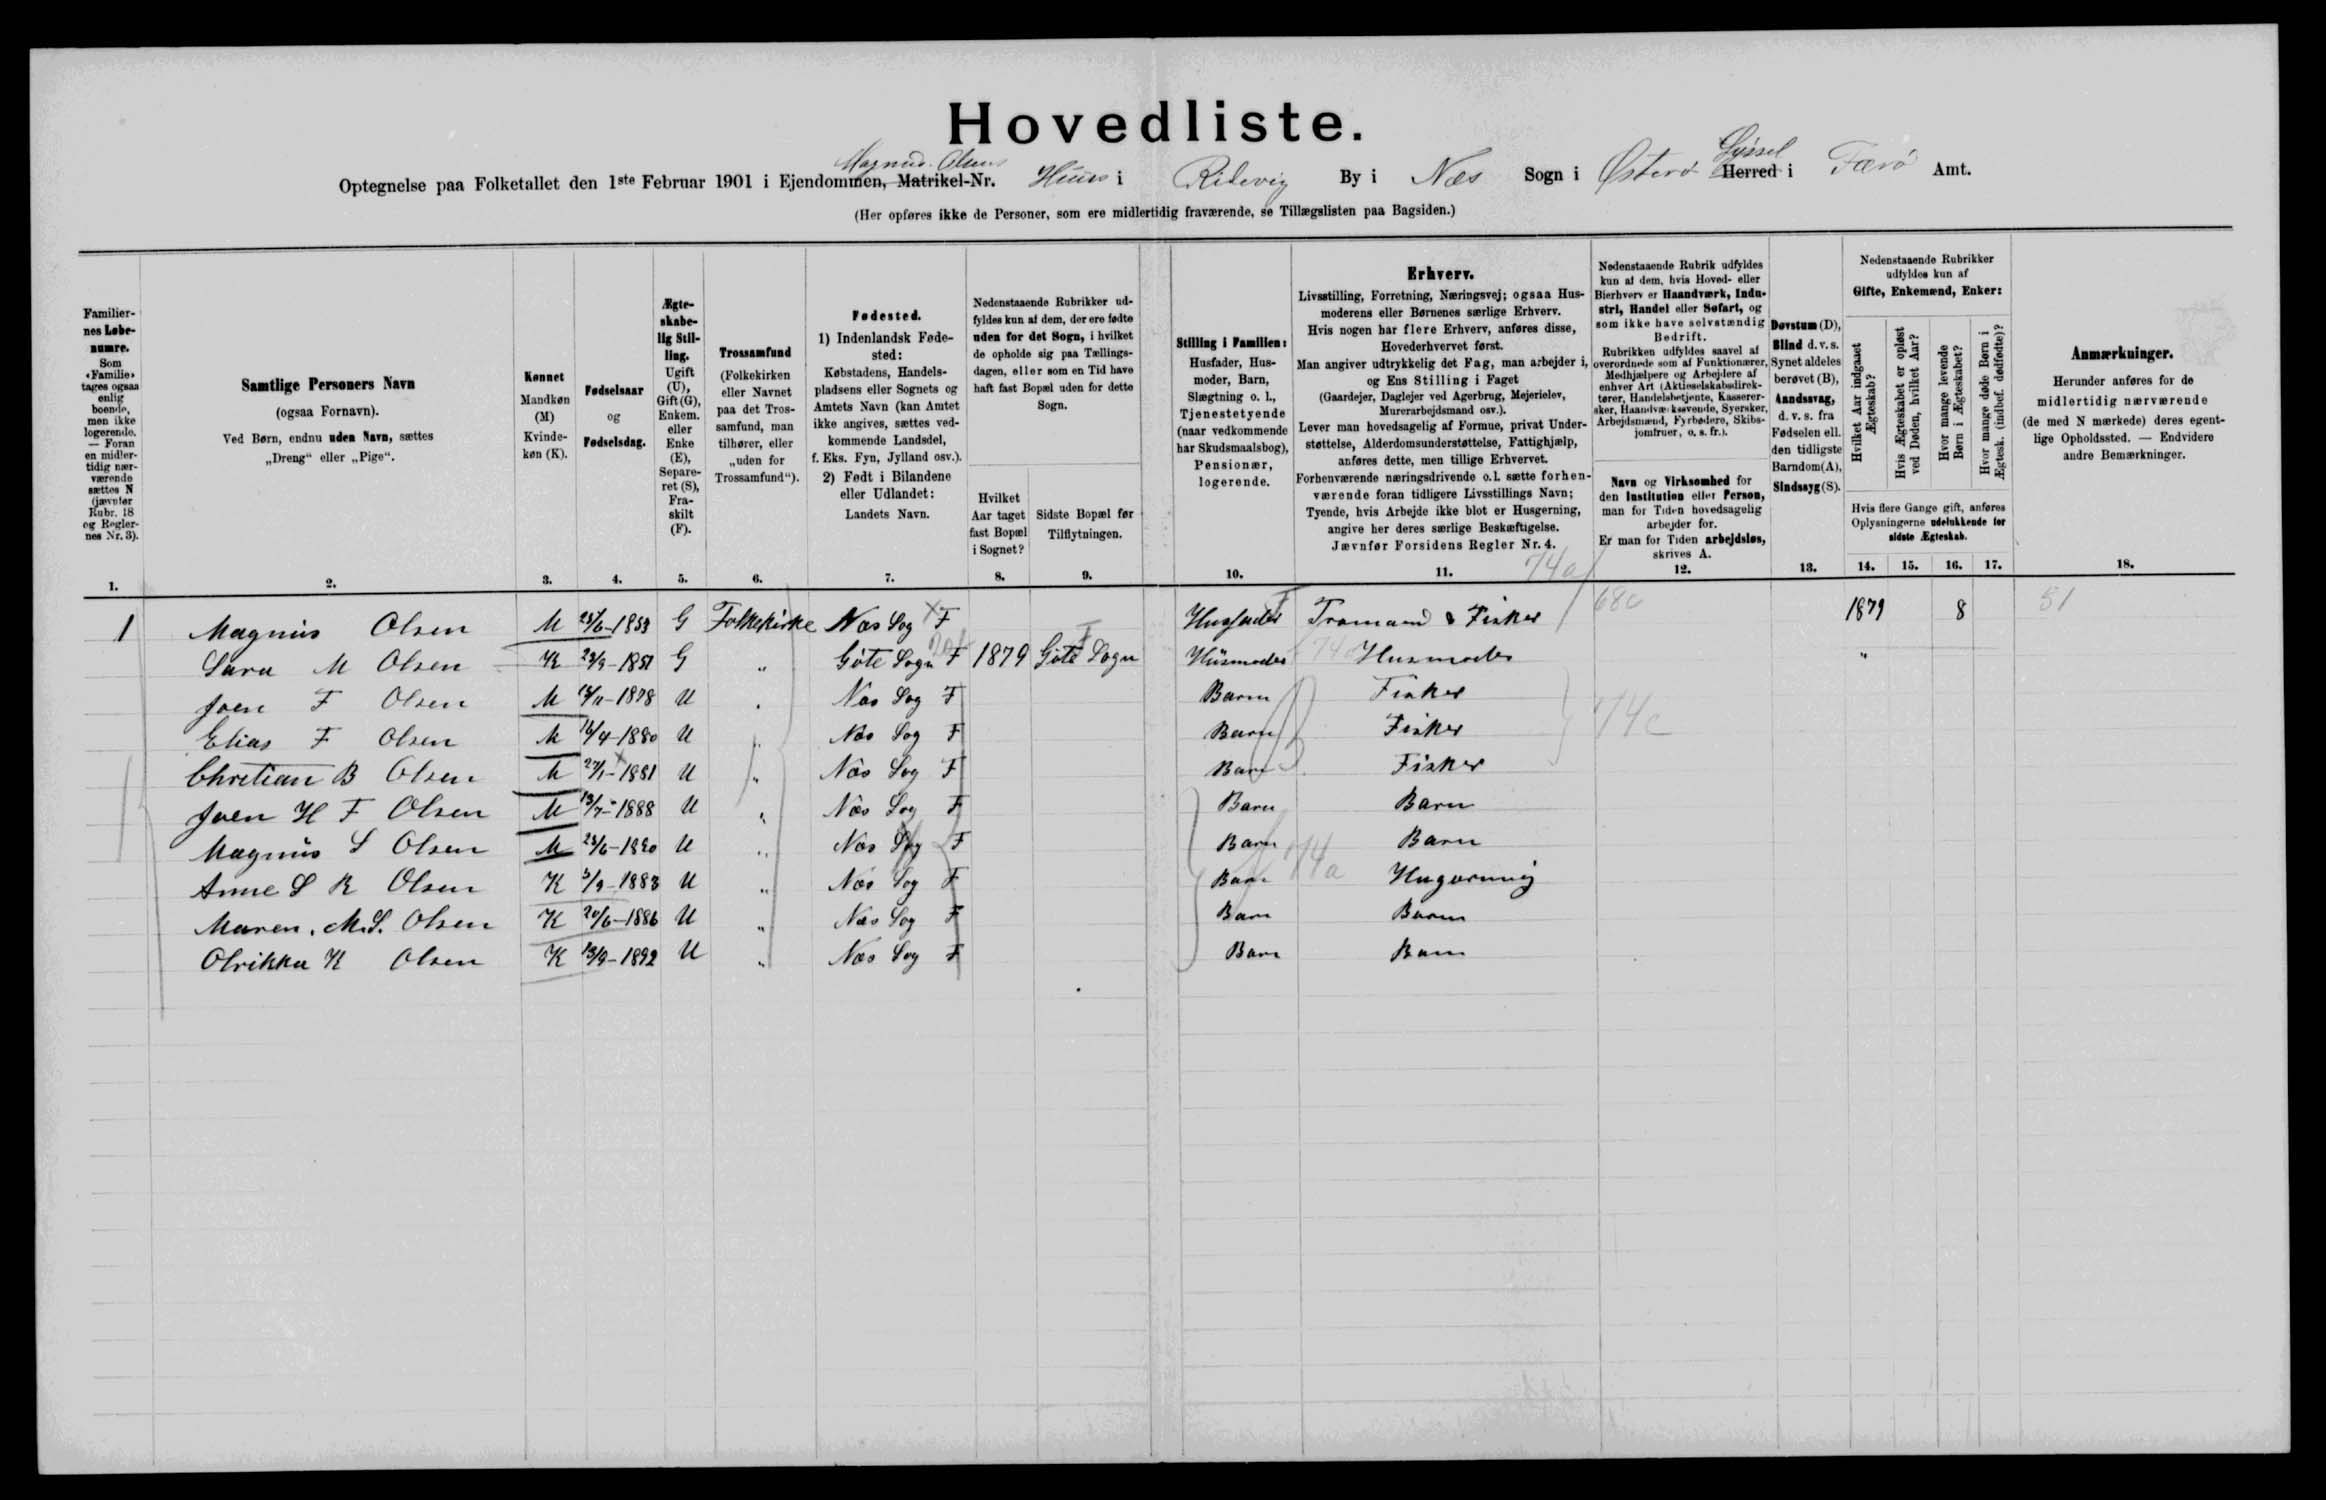 Hovedliste.
Optegnelse paa Folketallet den 1ste Februar 1901 i Ejendommen, Matrikel-Nr. Magnus Olsens Huus i Ritevig By i Næs Sogn i Østerø Syssel Herred i Færø Amt.
(Her opføres ikke de Personer, som ere midlertidig fraværende, se Tillægslisten paa Bagsiden.)
Familiernes Løbenumre. Som «Familie» tages ogsaa enlig boende, men ikke logerende. — Foran en midlertidig nærværende sættes N (jævnfør Rubr. 18 og Reglernes Nr. 3).
Samtlige Personers Navn (ogsaa Fornavn). Ved Børn, endnu uden Navn, sættes „Dreng“ eller „Pige“.
Kønnet Mandkøn (M) Kvindekøn (K).
Fødselsaar og Fødselsdag.
Ægteskabelig Stilling. Ugift (U), Gift (G), Enkem. eller Enke (E), Separeret (S), Fraskilt (F).
Trossamfund (Folkekirken eller Navnet paa det Trossamfund, man tilhører, eller „uden for Trossamfund“).
Fødested. 1) Indenlandsk Fødested: Købstadens, Handelspladsens eller Sognets og Amtets Navn (kan Amtet ikke angives, sættes vedkommende Landsdel, f. Eks. Fyn, Jylland osv.). 2) Født i Bilandene eller Udlandet: Landets Navn.
Nedenstaaende Rubrikker udfyldes kun af dem, der ere fødte uden for det Sogn, i hvilket de opholde sig paa Tællingsdagen, eller som en Tid have haft fast Bopæl uden for dette Sogn.
Hvilket Aar taget fast Bopæl i Sognet?
Sidste Bopæl før Tilflytningen.
Stilling i Familien: Husfader, Husmoder, Barn, Slægtning o. l., Tjenestetyende (naar vedkommende har Skudsmaalsbog), Pensionær, logerende.
Erhverv.
Livsstilling, Forretning, Næringsvej; ogsaa Husmoderens eller Børnenes særlige Erhverv.
Hvis nogen har flere Erhverv, anføres disse, Hovederhvervet først.
Man angiver udtrykkelig det Fag, man arbejder i, og Ens Stilling i Faget (Gaardejer, Daglejer ved Agerbrug, Mejerielev, Murerarbejdsmand osv.).
Lever man hovedsagelig af Formue, privat Understøttelse, Alderdomsunderstøttelse, Fattighjælp, anføres dette, men tillige Erhvervet.
Forhenværende næringsdrivende o. l. sætte forhenværende foran tidligere Livsstillings Navn; Tyende, hvis Arbejde ikke blot er Husgerning, angive her deres særlige Beskæftigelse.
Jævnfør Forsidens Regler Nr. 4.
Nedenstaaende Rubrik udfyldes kun af dem, hvis Hoved- eller Bierhverv er Haandværk, Industri, Handel eller Søfart, og som ikke have selvstændig Bedrift.
Rubrikken udfyldes saavel af overordnede som af Funktionærer, Medhjælpere og Arbejdere af enhver Art (Aktieselskabsdirektører, Handelsbetjente, Kasserersker, Haandværkssvende, Syersker, Arbejdsmænd, Fyrbødere, Skibsjomfruer, o. s. fr.).
Navn og Virksomhed for den Institution eller Person, man for Tiden hovedsagelig arbejder for.
Er man for Tiden arbejdsløs, skrives A.
Døvstum (D), Blind d. v. s. Synet aldeles berøvet (B), Aandssvag, d. v. s. fra Fødselen ell. den tidligste Barndom (A), Sindssyg (S).
Nedenstaaende Rubrikker udfyldes kun af Gifte, Enkemænd, Enker:
Hvilket Aar indgaaet Ægteskab?
Hvis Ægteskabet er opløst ved Døden, hvilket Aar?
Hvor mange levende Børn i Ægteskabet?
Hvor mange døde Børn i Ægtesk. (indbef. dødfødte)?
Hvis flere Gange gift, anføres Oplysningerne udelukkende for sidste Ægteskab.
Anmærkninger. Herunder anføres for de midlertidig nærværende (de med N mærkede) deres egentlige Opholdssted. — Endvidere andre Bemærkninger.
1. 2. 3. 4. 5. 6. 7. 8. 9. 10. 11. 12. 13. 14. 15. 16. 17. 18.
74a
1 Magnus Olsen M 1853 G Folkekirke Næs Sog F Husfader & Fisker 68c 1879 8 51
Sara M Olsen K 1851 G " Gøte Sogn F 1879 Gøte Sogn Husmoder Husmoder "
Joen F Olsen M 1878 U " Næs Sog F Barn Fisker
Elias F Olsen M 16/4-1880 U " Næs Sog F Barn Fisker 74c
Chrstian B Olsen M 27/1-1881 U " Næs Sog F Barn Fisker
Joen H F Olsen M 13/7-1888 U " Næs Sog F Barn Barn
Magnus S Olsen M 1890 U " Næs Sog F Barn 74a Barn
Anne S K Olsen K 1883 U " Næs Sog F Barn
Maren. M. S. Olsen K 20/6-1886 U " Næs Sog F Barn Barn
Olrikka K Olsen K 1892 U " Næs Sog F Barn Barn